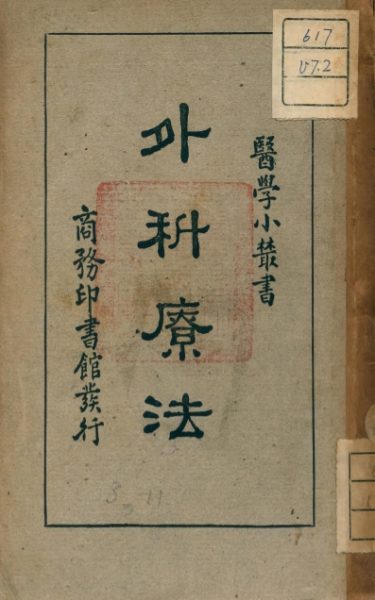 醫學小叢書
外科療法
商務印書館發行
617
U7.2
3 11